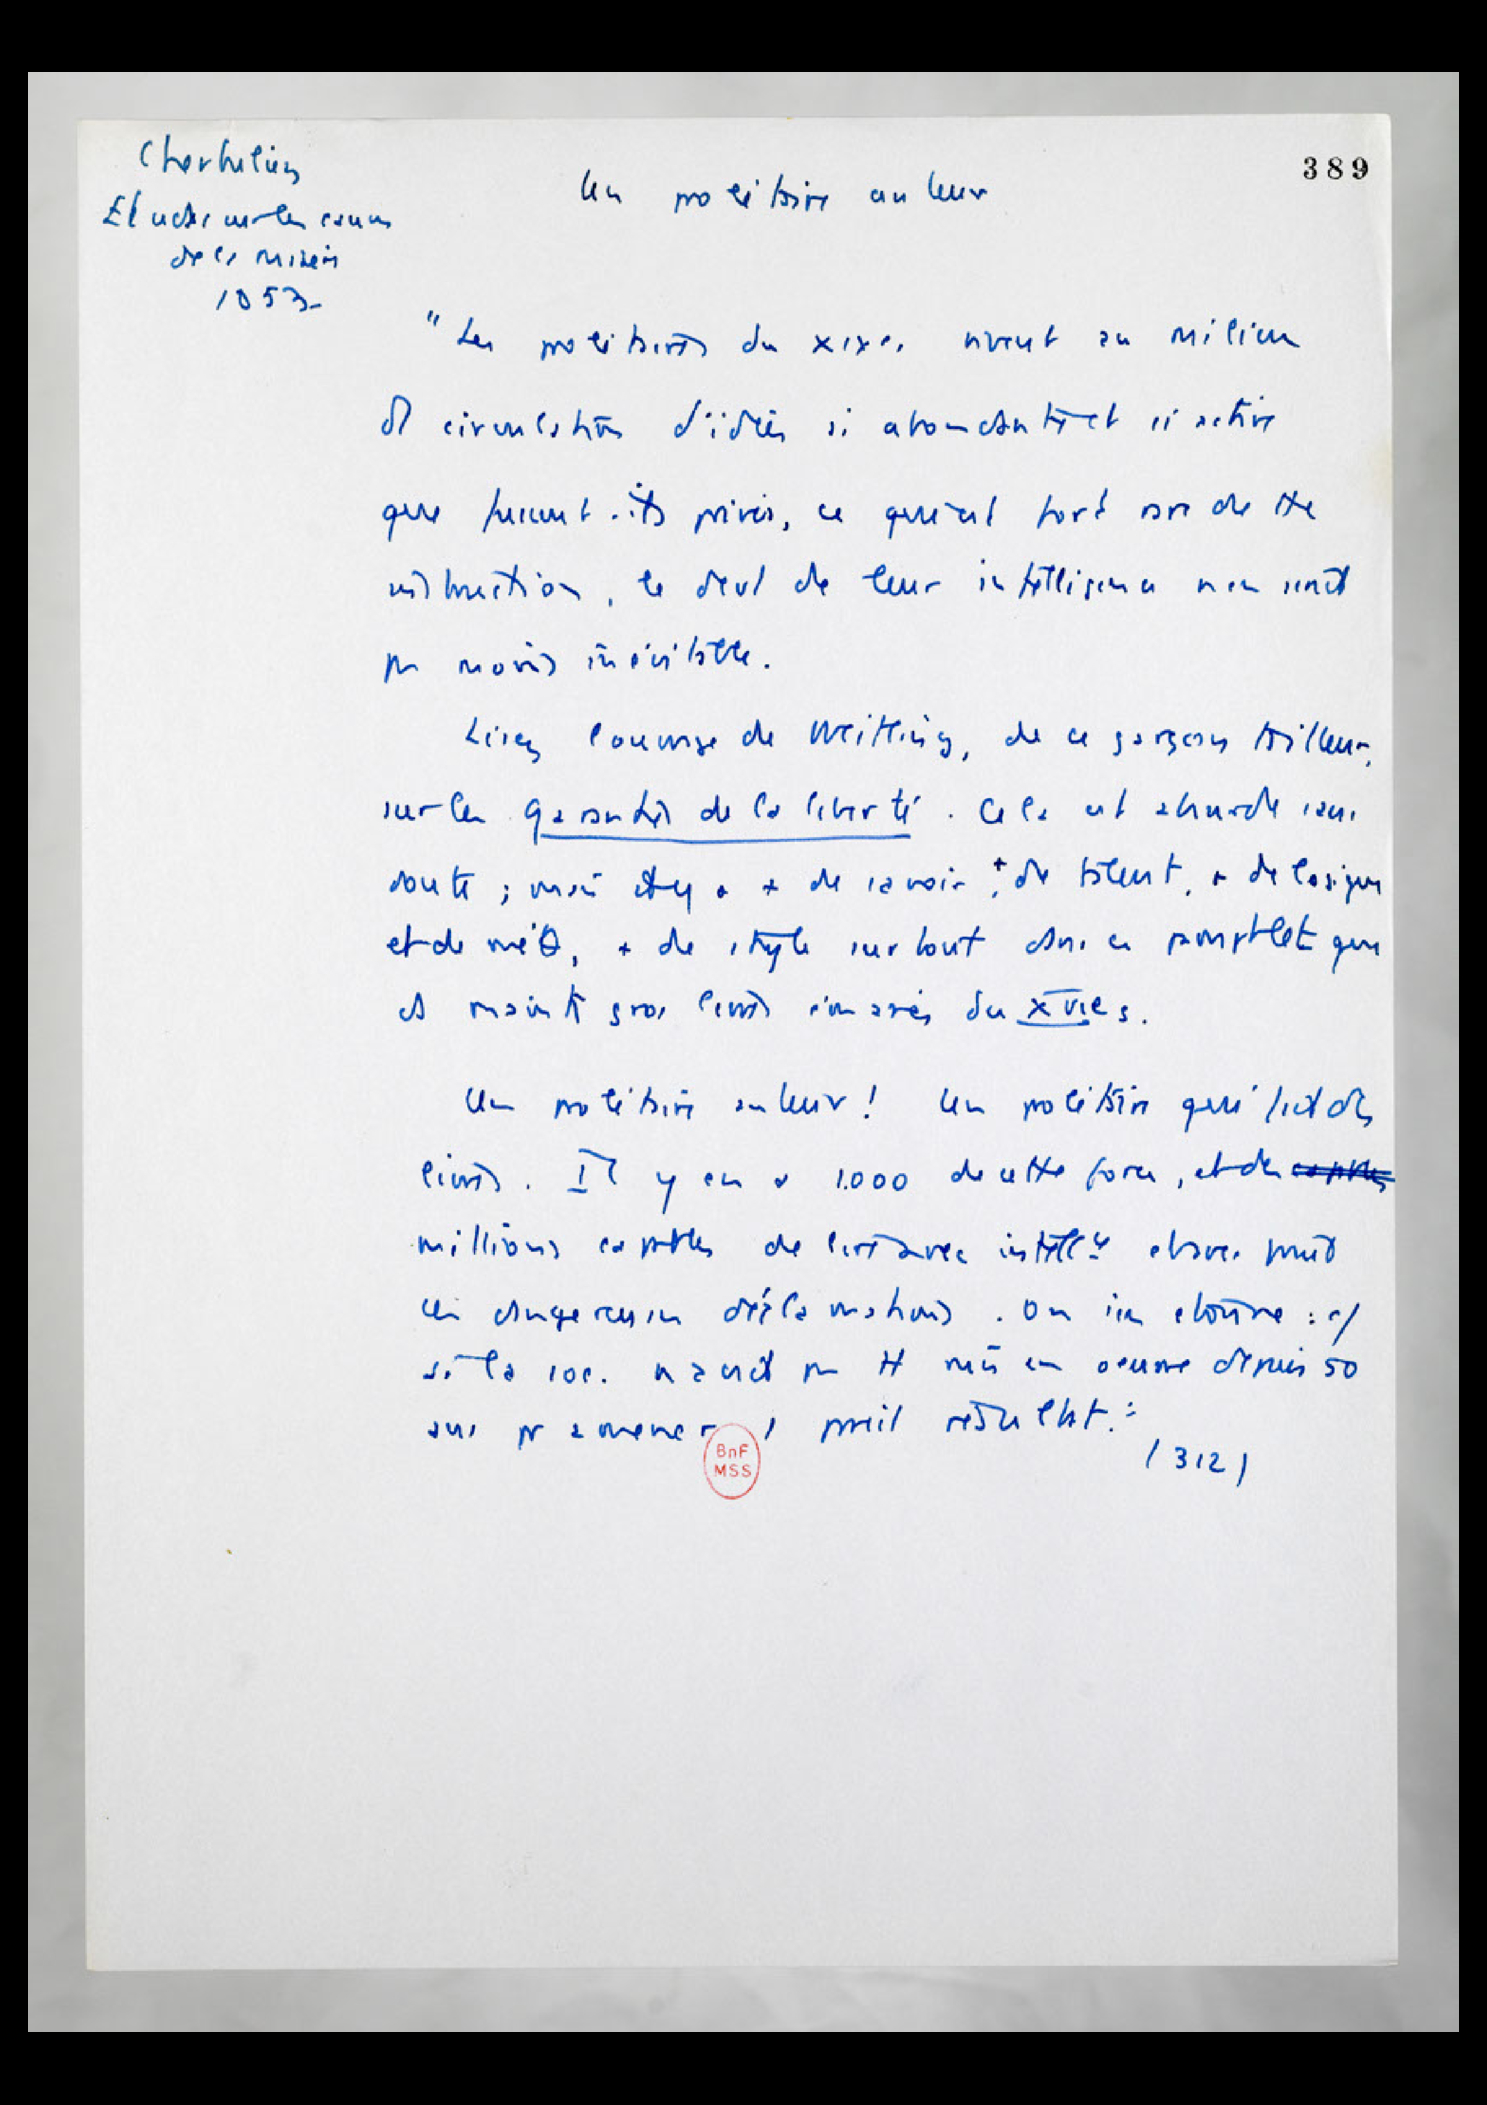 389
Cherbuliez
Etude sur les causes
de la misère
1853
Un prolétaire auteur
"Les prolétaires du XIXe s. vivent au milieu
d' circulation d'idées si abondante et si active
que fussent-ils privés, ce qui est fort rare de tte
instruction, le dévt de leur intelligence n'en serait
pas moins inévitable.
Lisez l'ouvrage de Weitling, de ce garçon tailleur,
sur les Garanties de la liberté. Cela est absurde sans
doute ; mais il y a + de savoir, + de talent, + de logique
et de méθ, + de style surtout dans ce pamphlet que
ds maints gros livres émanés du XVIe s.
Un prolétaire auteur ! Un prolétaire qui fait des
livres. Il y en a 1.000 de cette force, et des
millions capables de lire avec intellce
ces dangereuses déclamations. On s'en étonne :
si la soc. n'avait pas tt mis en oeuvre depuis 50
ans pr amener 1 pareil résultat."
(312)
BnF
MSS